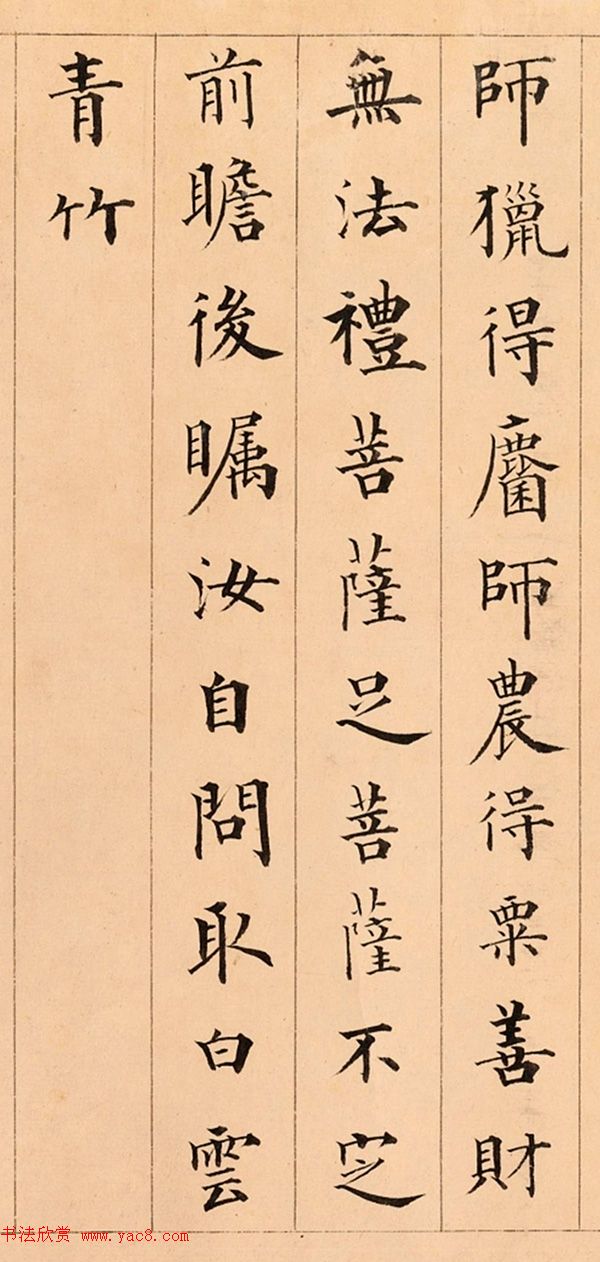 師獵得麕師農得粟善財
無法禮菩薩足菩薩不定
前瞻後矚汝自問取白雲
青竹
书法欣赏 www.yac8.com